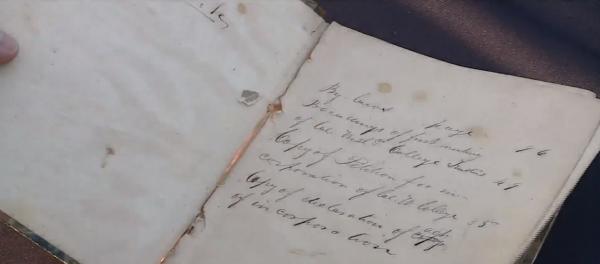 By Laws page 16
Proceedings of first meeting
of Cal. Med. College 49
Copy of Petition for in-
corporation of Cal. M. College 55
Copy of declaration of
of incorporation